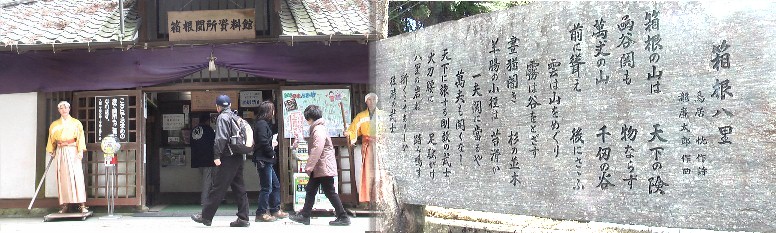 箱根関所資料館
箱根八里
鳥居 忱 作詩
瀧 廉太郎 作曲
箱根の山は 天下の険
函谷関も 物ならず
萬丈の山 千仞の谷
前に聳え 後にさゝふ
雲は山をめぐり
霧は谷をとざす
晝猶闇き 杉の並木
羊腸の小径は 苔滑か
一夫関に當るや
萬夫も開くなし
天下に旅する剛毅の武士
大刀腰に 足駄がけ
八里の岩ね 踏み鳴す
斯くこそありしか
往時の武士